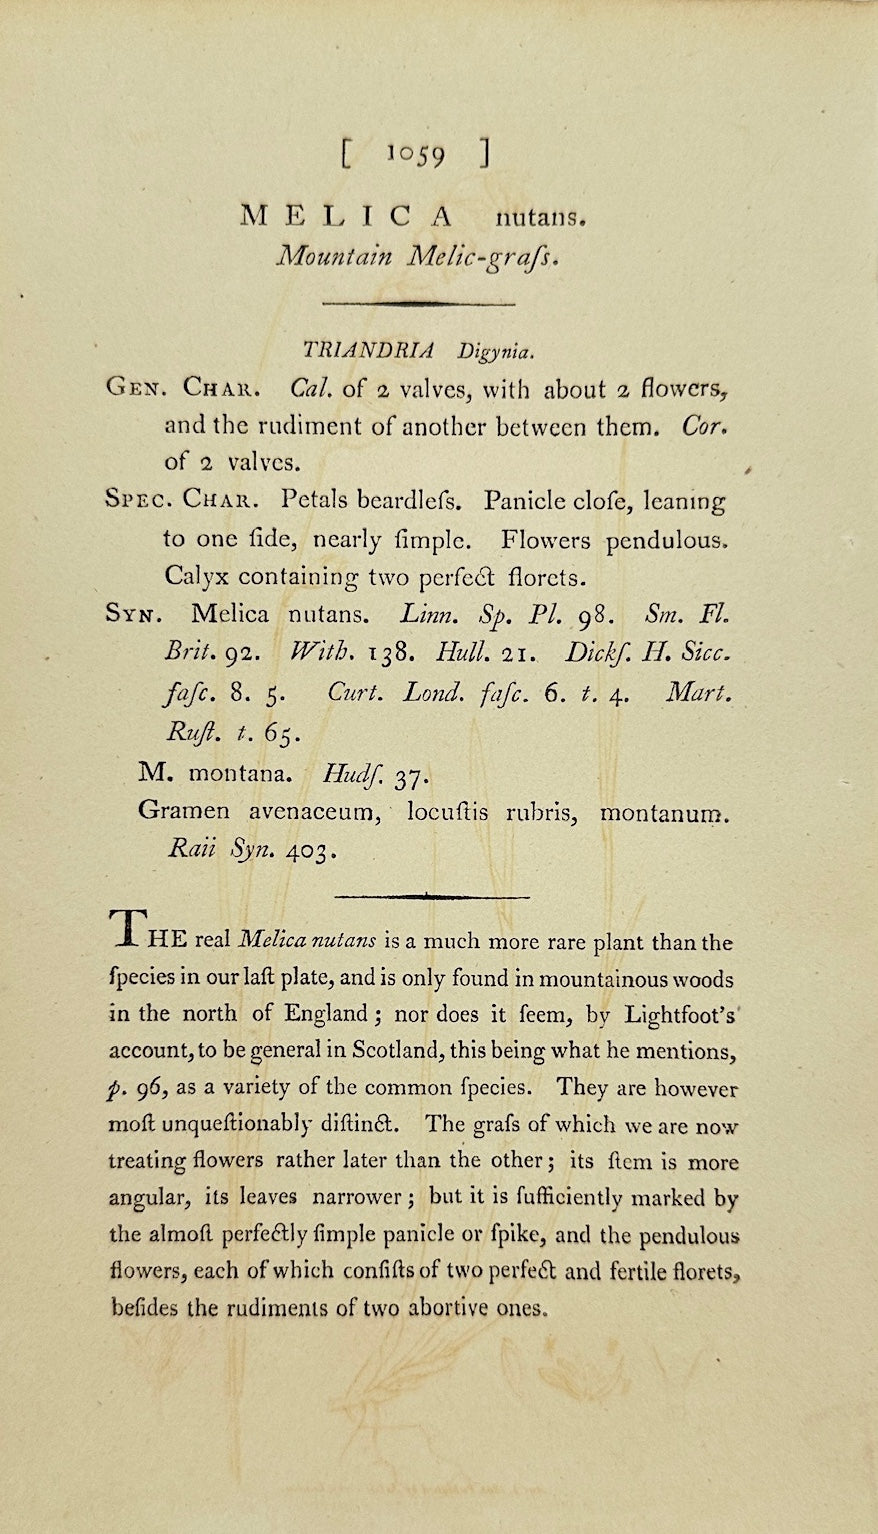 [ 1059 ]
MELICA nutans.
Mountain Melic-graſs.
TRIANDRIA Digynia.
GEN. CHAR. Cal. of 2 valves, with about 2 flowers,
and the rudiment of another between them. Cor.
of 2 valves.
SPEC. CHAR. Petals beardleſs. Panicle cloſe, leaning
to one ſide, nearly ſimple. Flowers pendulous.
Calyx containing two perfect florets.
SYN. Melica nutans. Linn. Sp. Pl. 98. Sm. Fl.
Brit. 92. With. 138. Hull. 21. Dickſ. H. Sicc.
faſc. 8. 5. Curt. Lond. faſc. 6. t. 4. Mart.
Ruſt. t. 65.
M. montana. Hudſ. 37.
Gramen avenaceum, locuſtis rubris, montanum.
Raii Syn. 403.
THE real Melica nutans is a much more rare plant than the
ſpecies in our laſt plate, and is only found in mountainous woods
in the north of England; nor does it ſeem, by Lightfoot's
account, to be general in Scotland, this being what he mentions,
p. 96, as a variety of the common ſpecies. They are however
moſt unqueſtionably diſtinct. The graſs of which we are now
treating flowers rather later than the other; its ſtem is more
angular, its leaves narrower; but it is ſufficiently marked by
the almoſt perfectly ſimple panicle or ſpike, and the pendulous
flowers, each of which conſiſts of two perfect and fertile florets,
beſides the rudiments of two abortive ones.